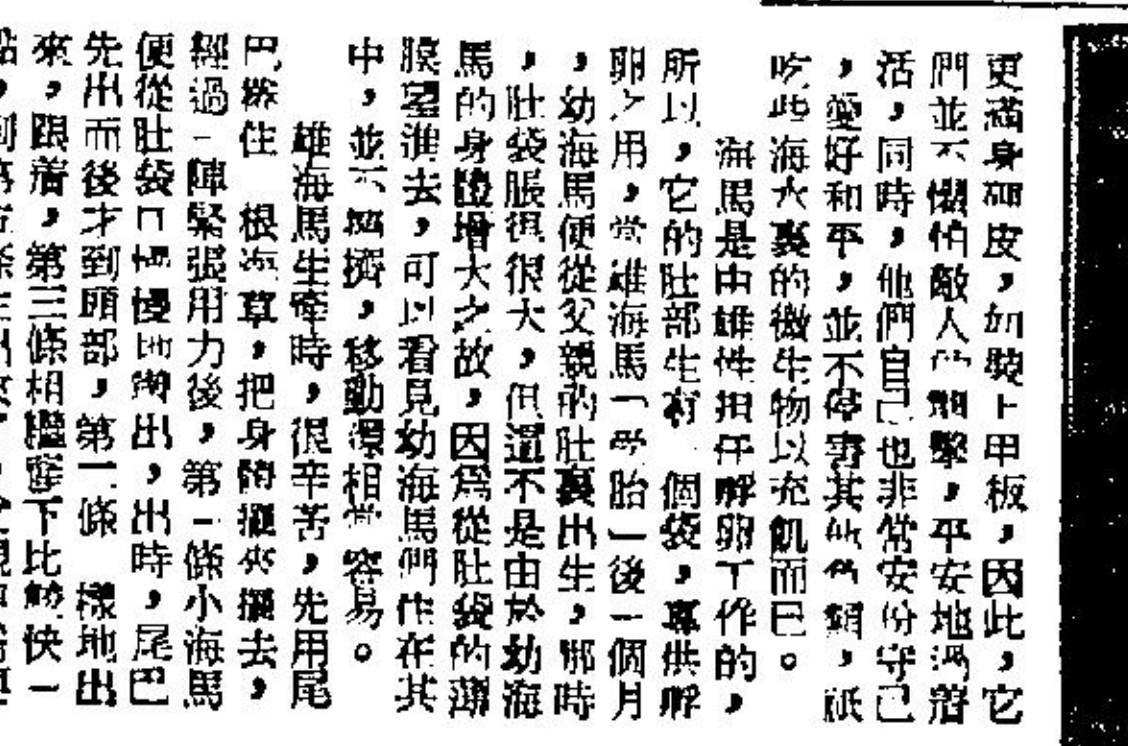 更滿身硬皮，如裝上甲板，因此，它
們並不懼怕敵人的襲擊，平安地過着
活，同時，他們自己也非常安份守己
，愛好和平，並不傷害其他魚類，祇
吃些海水裏的微生物以充飢而已。
海馬是由雄性担任孵卵工作的，
所以，它的肚部生有一個袋，專供孵
卵之用，當雄海馬「受胎」後一個月
，幼海馬便從父親的肚裏出生，那時
，肚袋脹得很大，但還不是由於幼海
馬的身體增大之故，因爲從肚袋的薄
膜望進去，可以看見幼海馬們住在其
中，並不擁擠，移動還相當容易。
雄海馬生產時，很辛苦，先用尾
巴捲住一根海草，把身體擺來擺去，
經過一陣緊張用力後，第一條小海馬
便從肚袋口慢慢地溜出，出時，尾巴
先出而後才到頭部，第二條一樣地出
來，跟着，第三條相繼產下比較快一